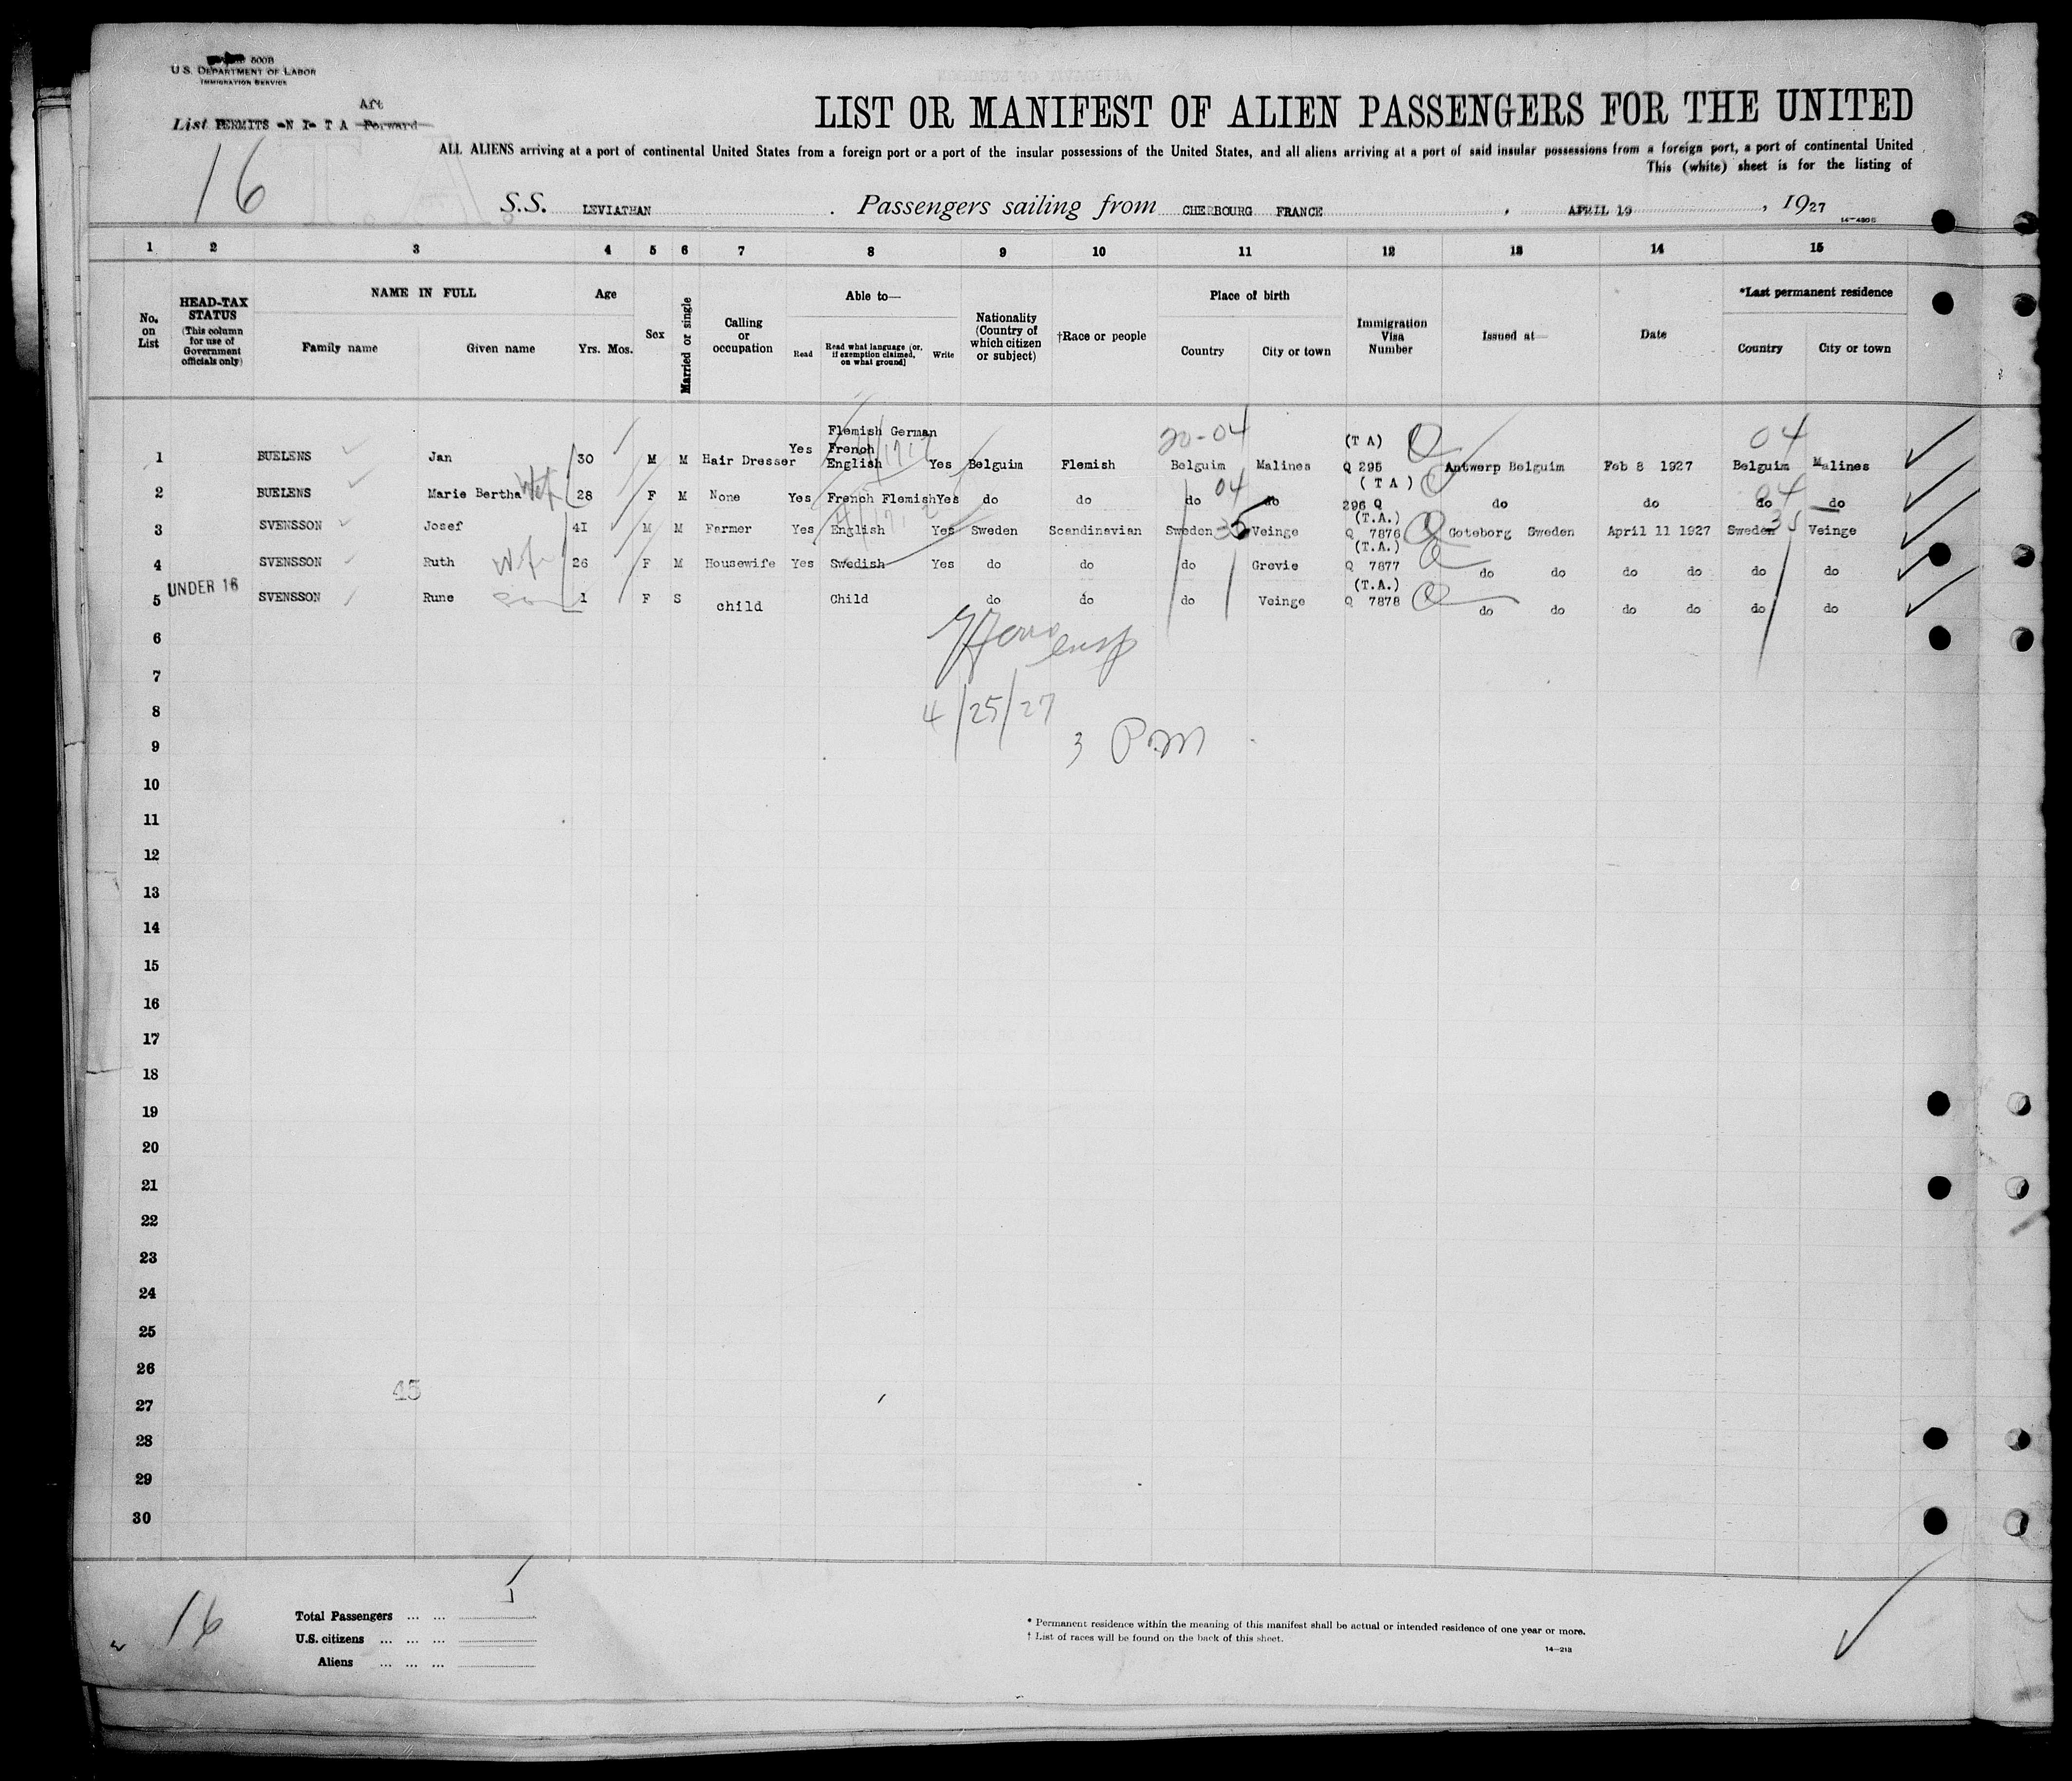 500B
U.S. DEPARTMENT OF LABOR
IMMIGRATION SERVICE
Aft
List PERMITS -N I- T A Forward
16
LIST OR MANIFEST OF ALIEN PASSENGERS FOR THE UNITED
ALL ALIENS arriving at a port of continental United States from a foreign port or a port of the insular possessions of the United States, and all aliens arriving at a port of said insular possessions from a foreign port, a port of continental United
This (white) sheet is for the listing of
S.S. LEVIATHAN . Passengers sailing from CHERBOURG FRANCE , APRIL 19 , 1927
1 2 3 4 5 6 7 8 9 10 11 12 13 14 15
No. on List
HEAD-TAX STATUS (This column for use of Government officials only)
NAME IN FULL
Family name Given name
Age
Yrs. Mos.
Sex
Married or single
Calling or occupation
Able to—
Read Read what language [or, if exemption claimed, on what ground] Write
Nationality (Country of which citizen or subject)
†Race or people
Place of birth
Country City or town
Immigration Visa Number
Issued at—
Date
*Last permanent residence
Country City or town
20-04 04
Flemish German
French (T A)
1 BUELENS Jan 30 M M Hair Dresser Yes English Yes Belguim Flemish Belguim Malines Q 295 Antwerp Belguim Feb 8 1927 Belguim Malines
04 (T A) 04
2 BUELENS Marie Bertha Wife 28 F M None Yes French Flemish Yes do do do do 296 Q do do do do
(T.A.)
3 SVENSSON Josef 41 M M Farmer Yes English Yes Sweden Scandinavian Sweden 35 Veinge Q 7876 Goteborg Sweden April 11 1927 Sweden 35 Veinge
(T.A.)
4 SVENSSON Ruth Wife 26 F M Housewife Yes Swedish Yes do do do Grevie Q 7877 do do do do do do
(T.A.)
5 UNDER 16 SVENSSON Rune Son 1 F S child Child do do do Veinge Q 7878 do do do do do do
6
7
8
4/25/27
9
3 PM
10
11
12
13
14
15
16
17
18
19
20
21
22
23
24
25
26
45
27
28
29
30
16
Total Passengers ... ...
U.S. citizens ... ... ...
Aliens ... ... ...
* Permanent residence within the meaning of this manifest shall be actual or intended residence of one year or more.
† List of races will be found on the back of this sheet.
14—213